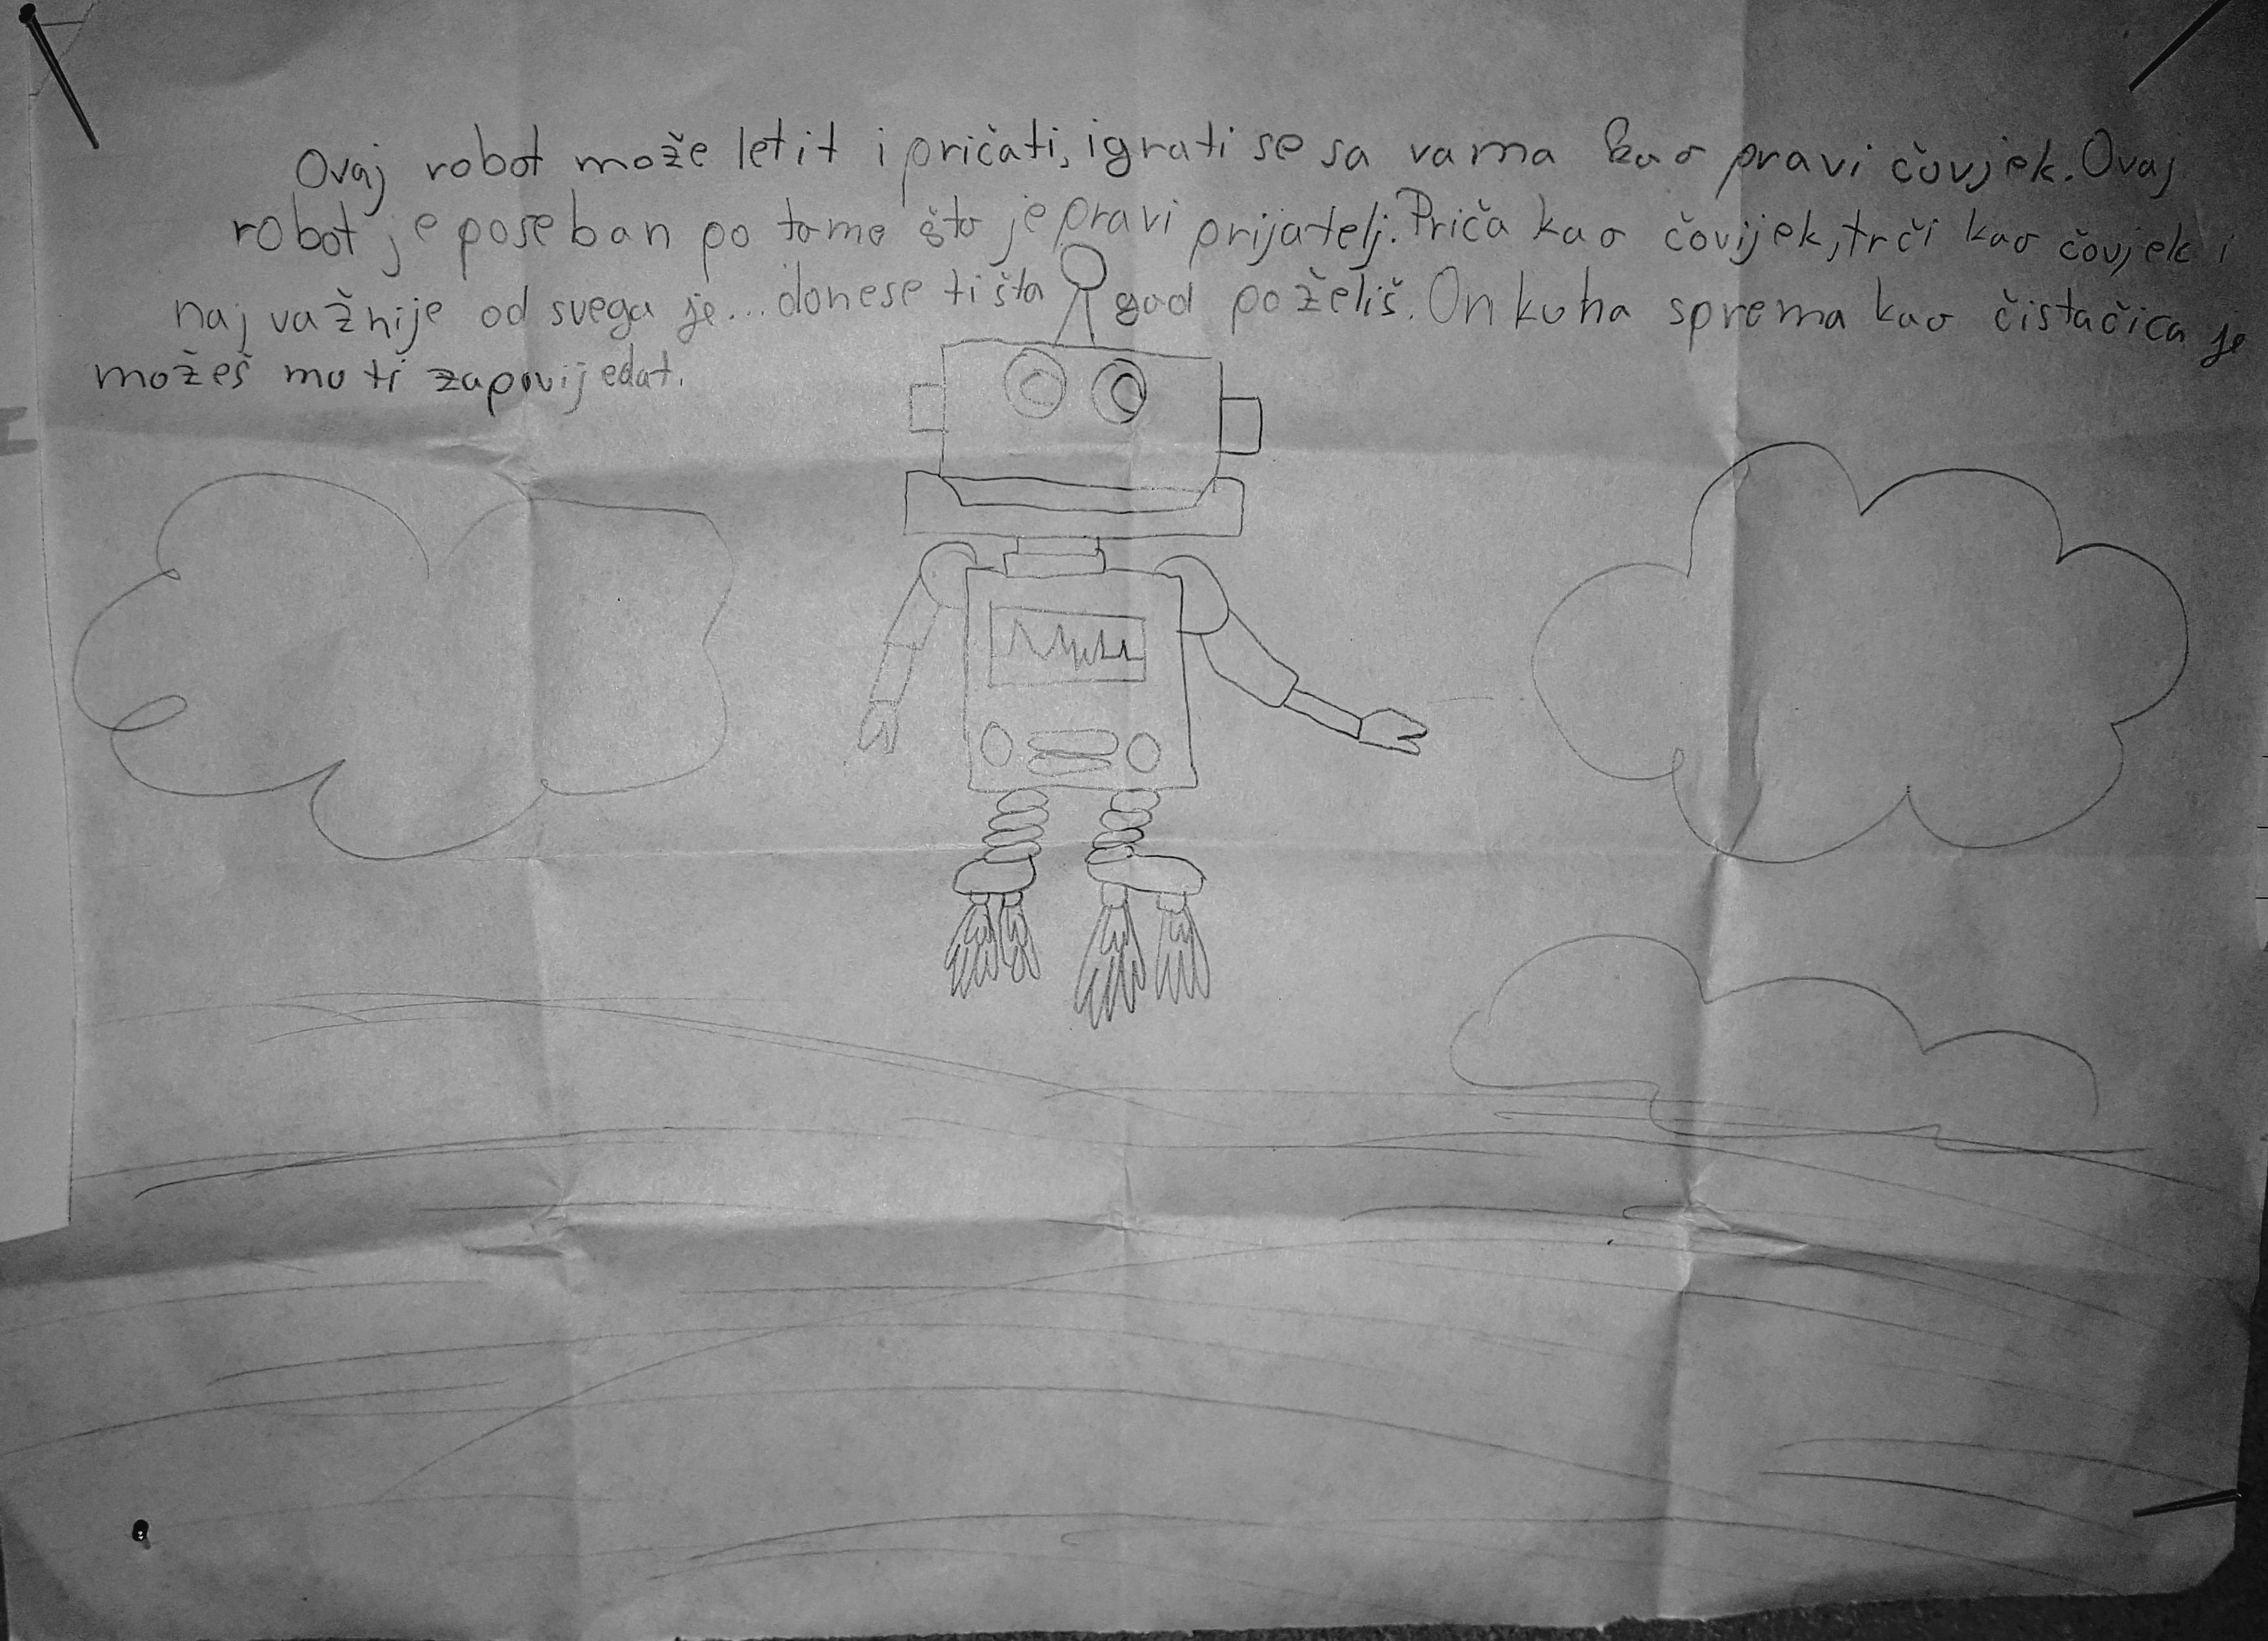 Ovaj robot može letit i pričati, igrati se sa vama kao pravi čovjek. Ovaj
robot je poseban po tome što je pravi prijatelj. Priča kao čovijek, trči kao čovjek i
naj važnije od svega je... donese ti šta god poželiš. On kuha sprema kao čistačica je
možeš mu ti zapovijedat.